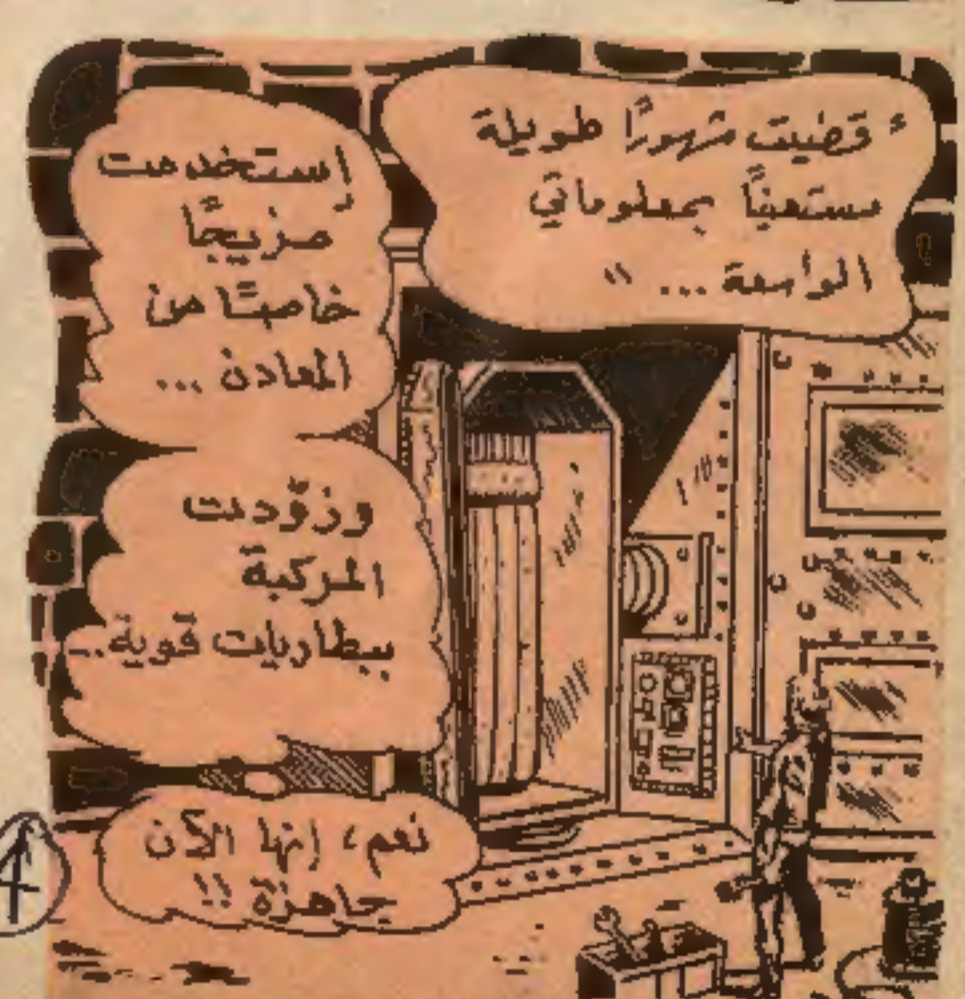 " قضيت شهورًا طويلة
مستعينًا بمعلوماتي
الواسعة ... "
إستخدمت
مزيجًا
خاصًا من
المعادن ...
وزوّدت
المركبة
ببطاريات قوية..
نعم، إنها الآن
جاهزة !!